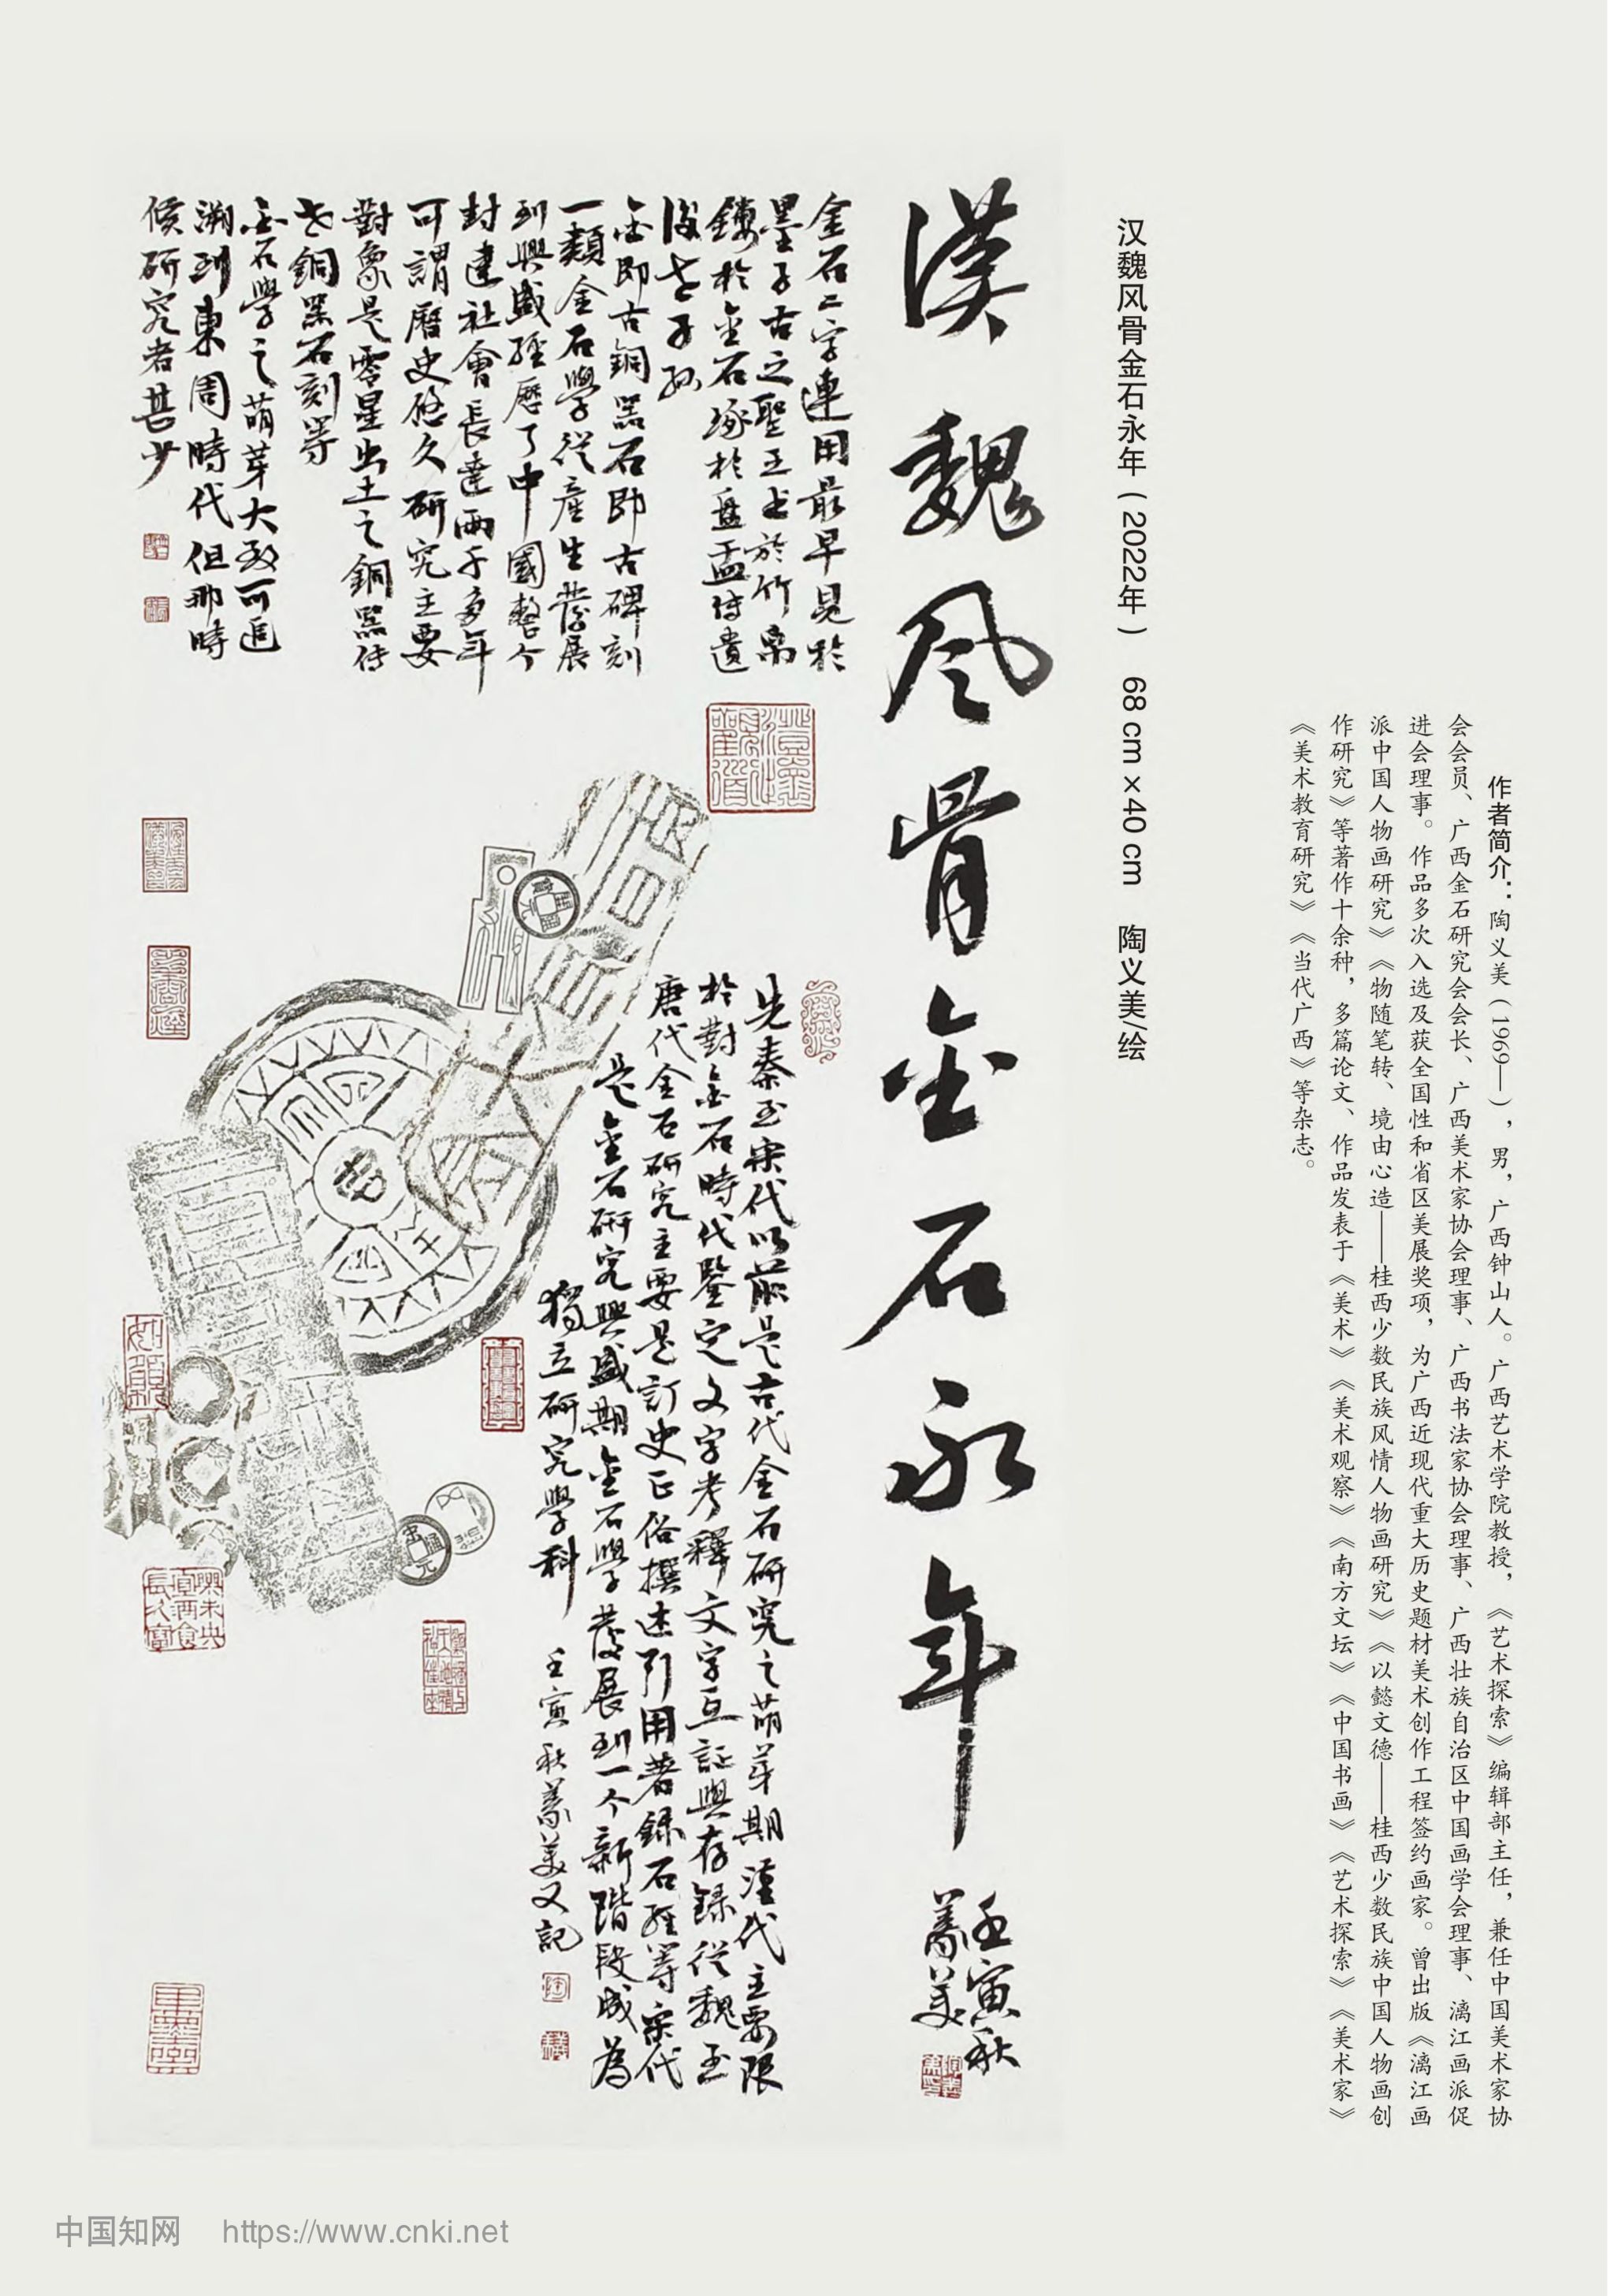 作者简介：陶义美(1969—)，男，广西钟山人。广西艺术学院教授，《艺术探索》编辑部主任，兼任中国美术家协
会会员、广西金石研究会会长、广西美术家协会理事、广西书法家协会理事、广西壮族自治区中国画学会理事、漓江画派促
进会理事。作品多次入选及获全国性和省区美展奖项，为广西近现代重大历史题材美术创作工程签约画家。曾出版《漓江画
派中国人物画研究》《物随笔转、境由心造——桂西少数民族风情人物画研究》《以懿文德——桂西少数民族中国人物画创
作研究》等著作十余种，多篇论文、作品发表于《美术》《美术观察》《南方文坛》《中国书画》《艺术探索》《美术家》
《美术教育研究》《当代广西》等杂志。
汉魏风骨金石永年(2022年) 68 cm×40 cm 陶义美/绘
漢魏風骨金石永年
壬寅秋
義美
金石二字連用最早見於
墨子古之聖王書於竹帛
鏤於金石琢於盤盂傳遺
後世子孫
金即古銅器石即古碑刻
一類金石學從產生發展
到興盛經歷了中國整个
封建社會長達兩千多年
可謂曆史悠久研究主要
對象是零星出土之銅器傳
世銅器石刻等
金石學之萌芽大致可追
溯到東周時代但那時
候研究者甚少
先秦至宋代以前是古代金石研究之萌芽期漢代主要限
於對金石時代鑒定文字考釋文字互証與存録從魏至
唐代金石研究主要是訂史正俗撰述引用著録石經等宋代
是金石研究興盛期金石學發展到一个新階段成為
獨立研究學科 壬寅秋義美又記
中国知网 https://www.cnki.net